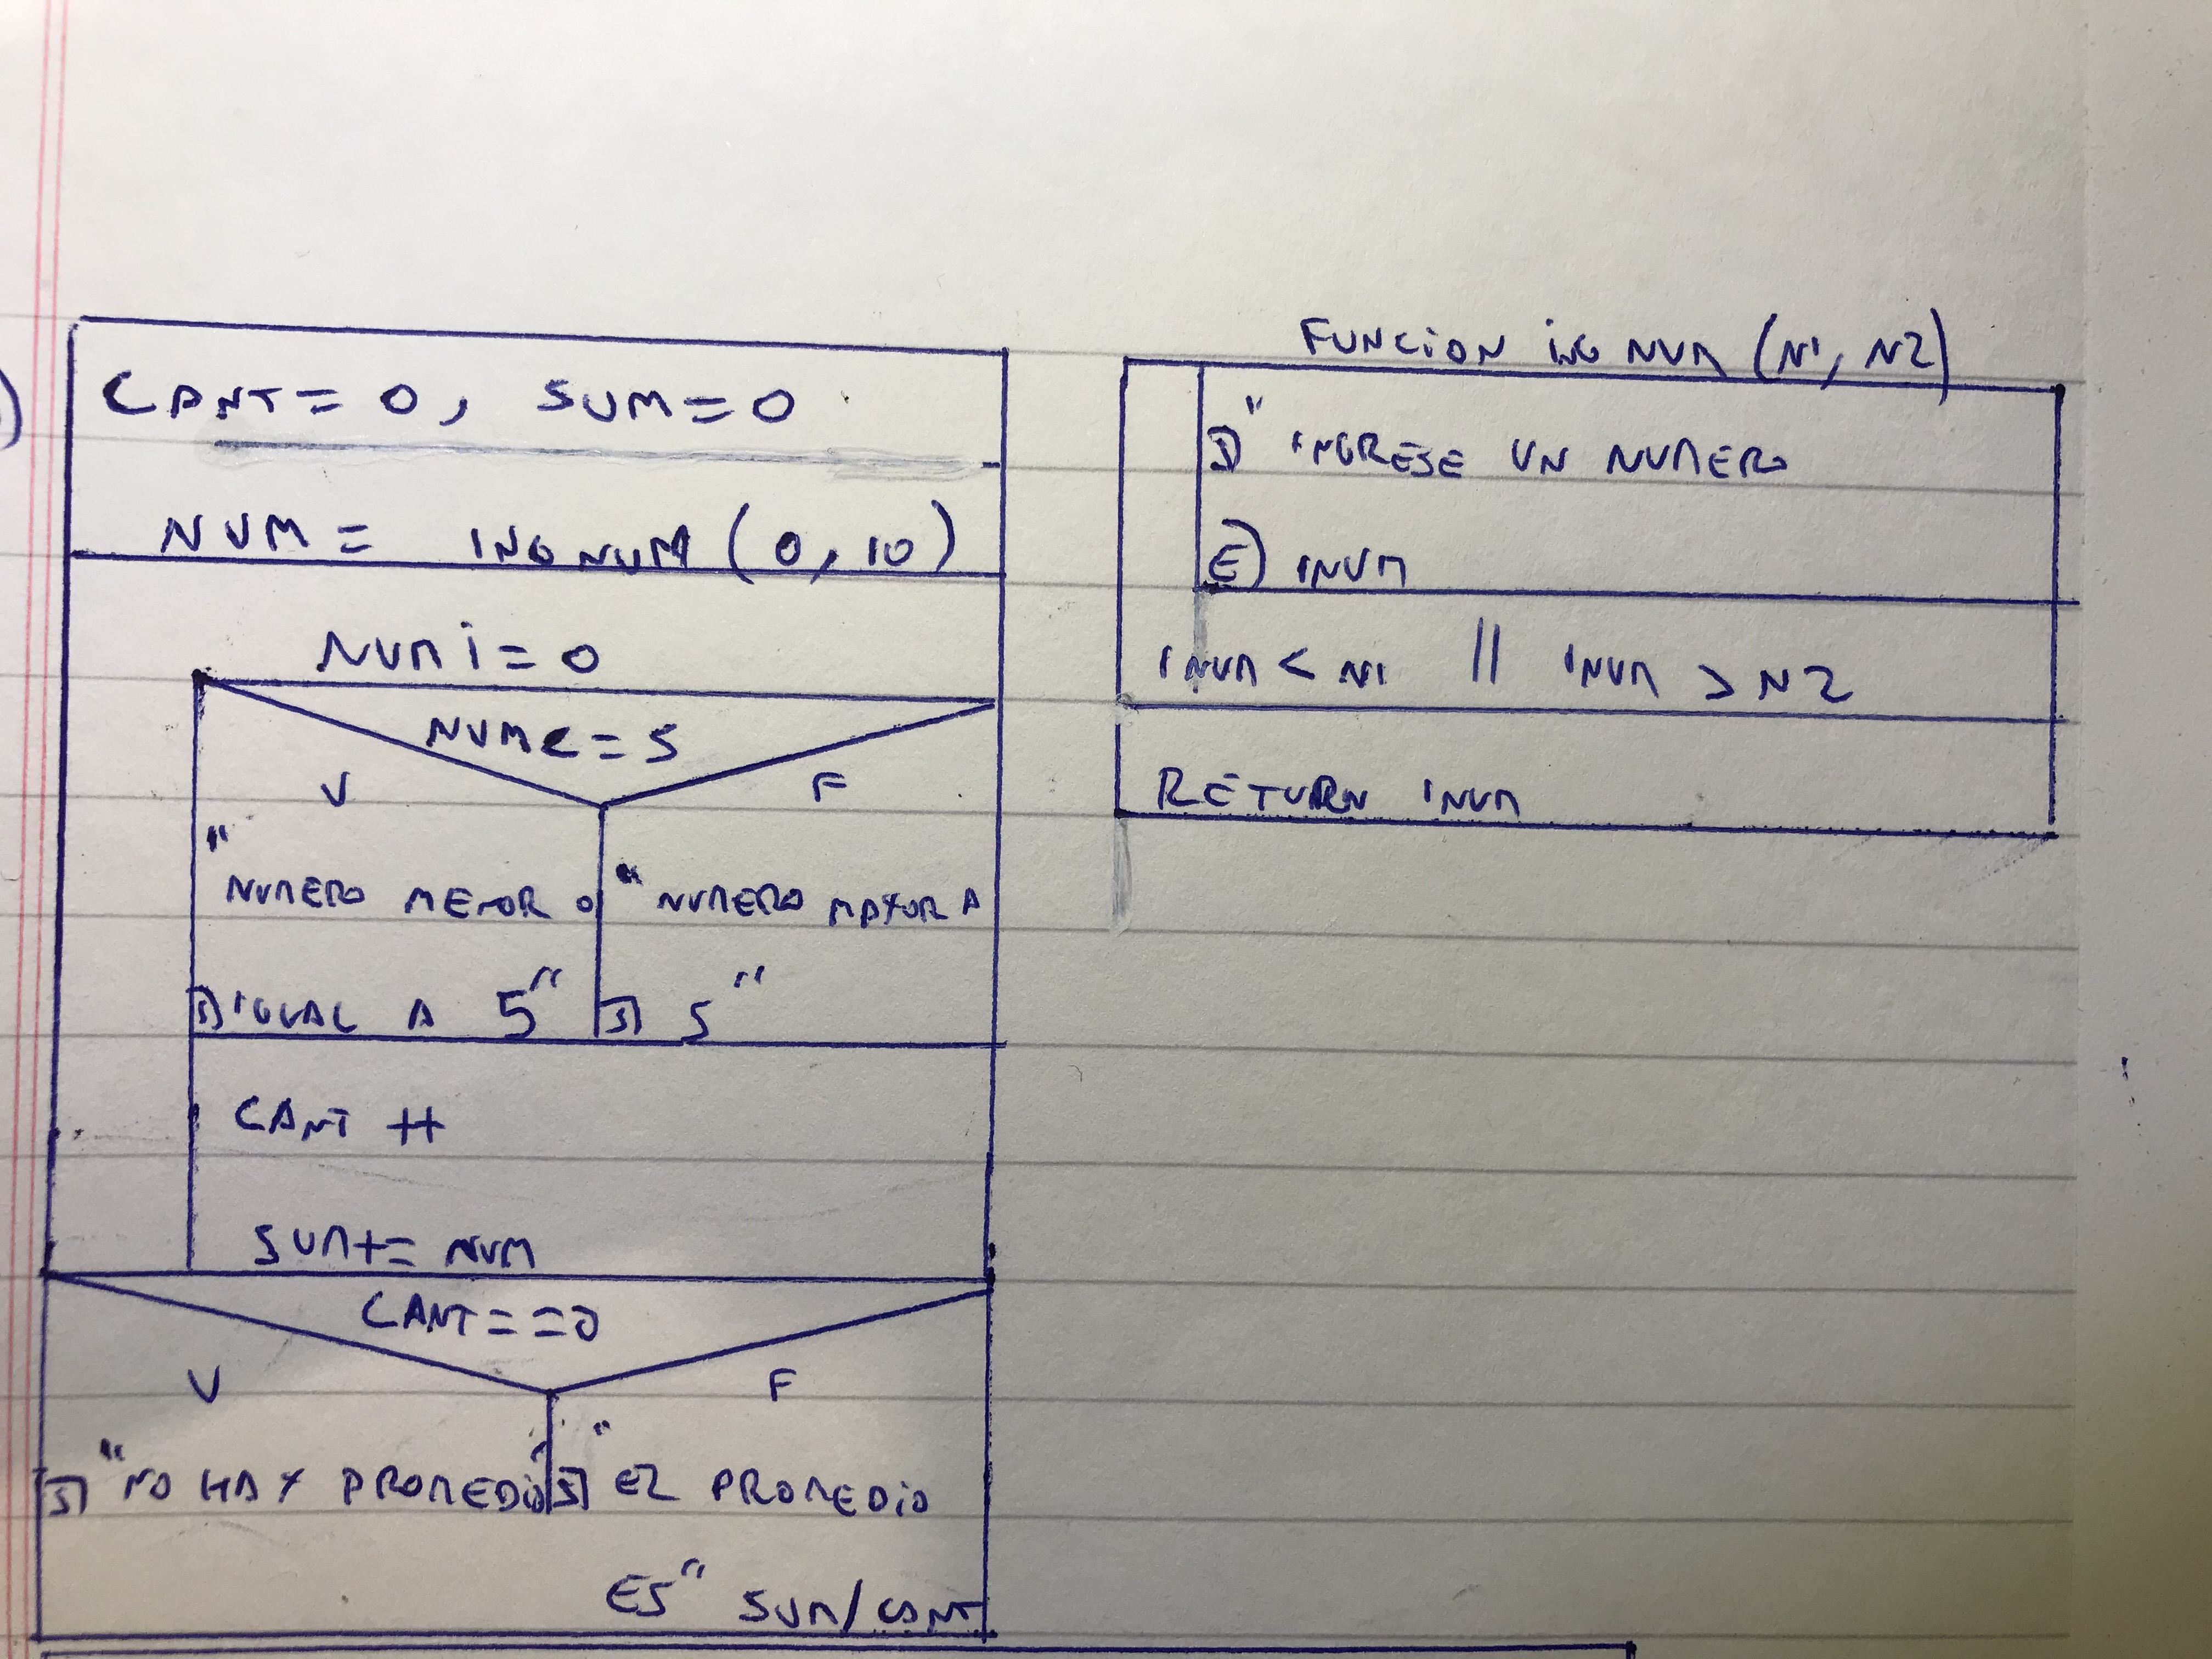 CANT = 0, SUM = 0
NUM = INGNUM (0, 10)
NUM != 0
NUM <= 5
V F
" NUMERO MENOR O
S) IGUAL A 5"
" NUMERO MAYOR A
S) 5 "
CANT ++
SUM += NUM
CANT == 0
V F
S) " NO HAY PROMEDIO"
S) " EL PROMEDIO
ES" SUM/CANT
FUNCION INGNUM (N1, N2)
S) " INGRESE UN NUMERO
E) INUM
INUM < N1 || INUM > N2
RETURN INUM